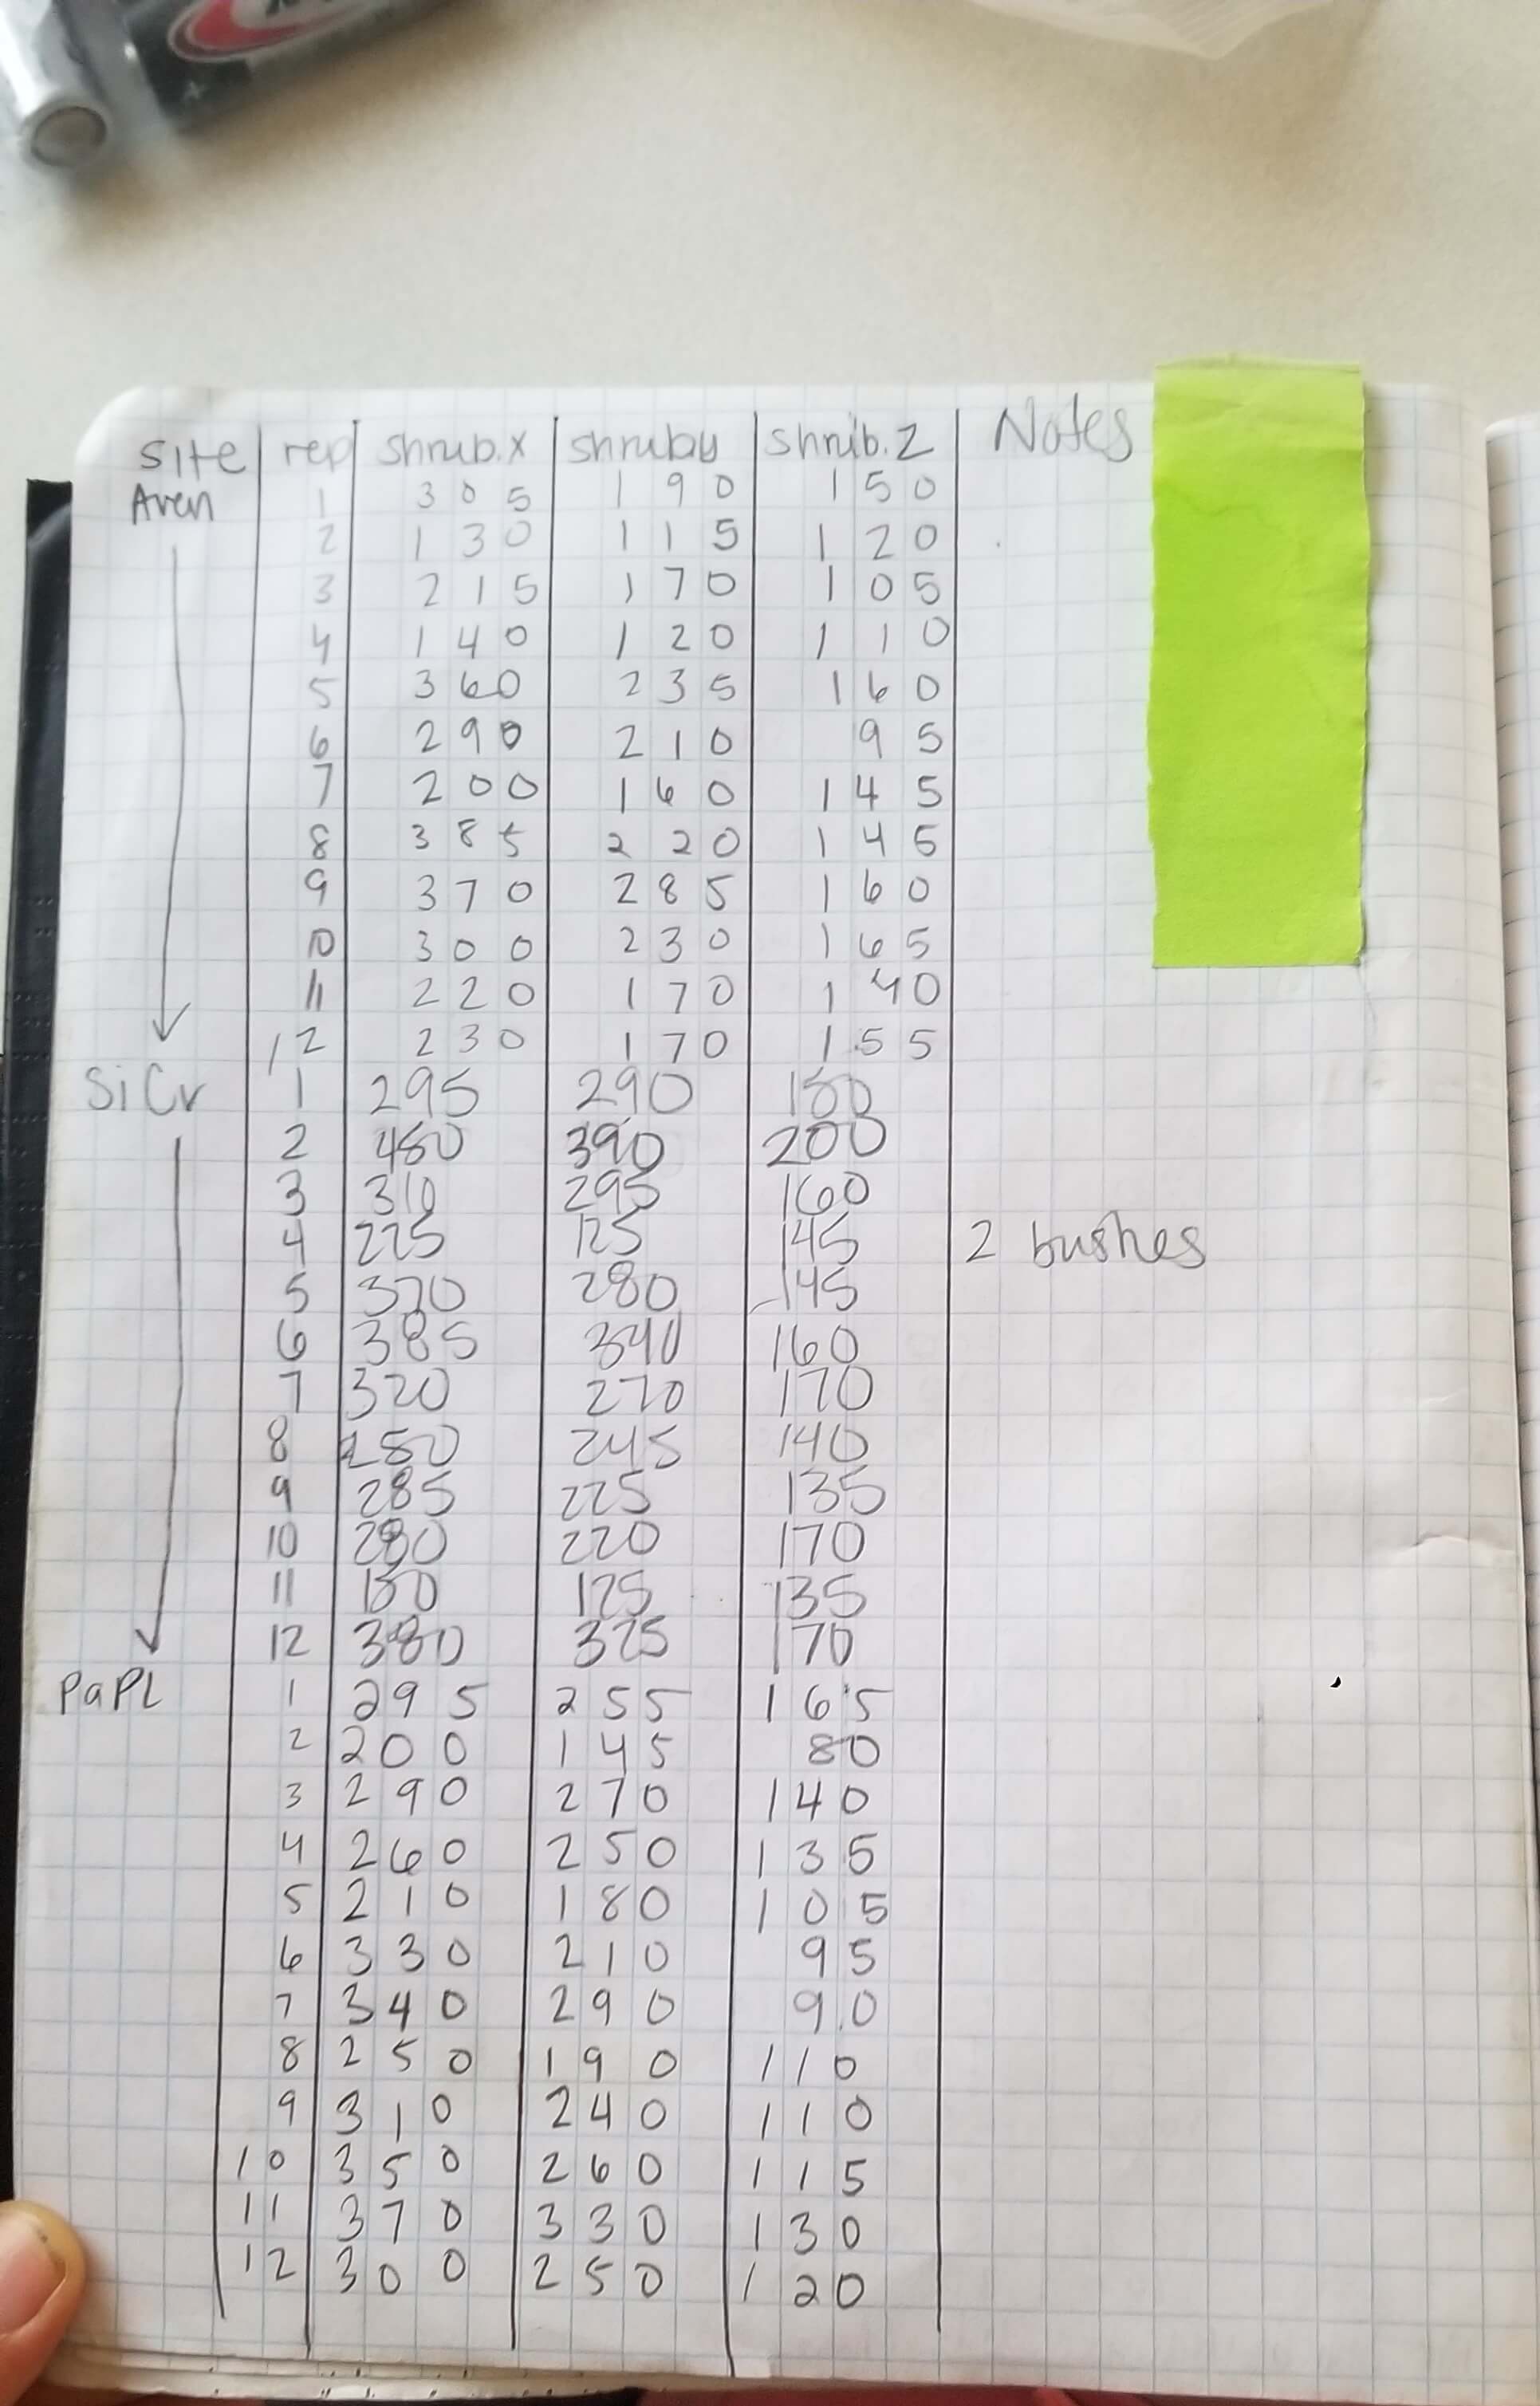 site rep shrub.x shruby shrub.z Notes
Aven 1 305 190 150
2 130 115 120
3 215 170 105
4 140 120 110
5 360 235 160
6 290 210 95
7 200 160 145
8 385 220 145
9 370 285 160
10 300 230 165
11 220 170 140
12 230 170 155
SiCr 1 295 290
2 390 200
3 310 295 160
4 225 125 145 2 bushes
5 370 280 145
6 385 340 160
7 320 270 170
8 245 140
9 285 225 135
10 280 220 170
11 125 135
12 380 325 170
PaPL 1 295 255 165
2 200 145 80
3 290 270 140
4 260 250 135
5 210 180 105
6 330 210 95
7 340 290 90
8 250 190 110
9 310 240 110
10 350 260 115
11 370 330 130
12 300 250 120